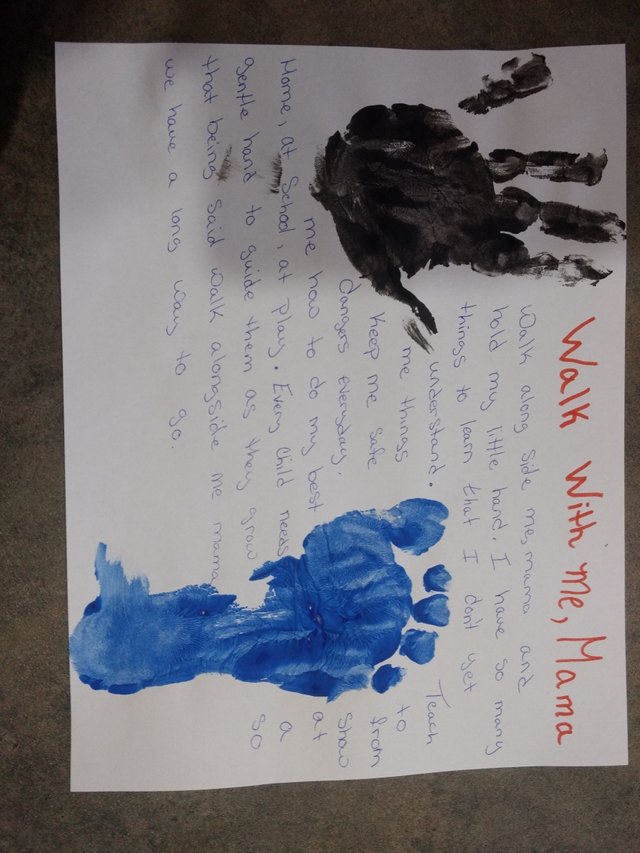 Walk With me, Mama
Walk along side me, mama and
hold my little hand. I have so many
things to learn that I don't yet
understand. Teach
me things to
Keep me safe from
dangers everyday. Show
me how to do my best at
Home, at School, at Play. Every Child needs a
gentle hand to guide them as they grow so
that being said walk alongside me mama
we have a long way to go.